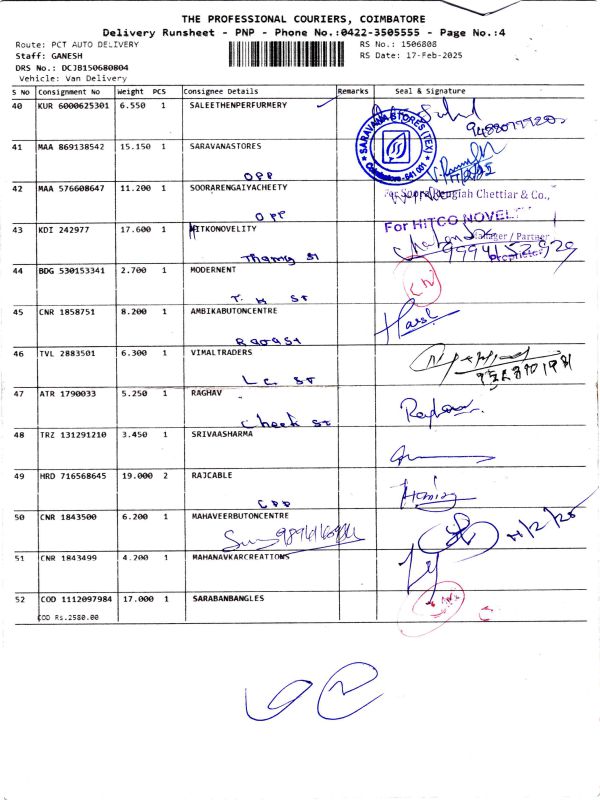 THE PROFESSIONAL COURIERS, COIMBATORE
Delivery Runsheet - PNP - Phone No.:0422-3505555 - Page No.:4
Route: PCT AUTO DELIVERY RS No.: 1506808
Staff: GANESH RS Date: 17-Feb-2025
DRS No.: DCJB150680804
Vehicle: Van Delivery
S No Consignment No Weight PCS Consignee Details Remarks Seal & Signature
40 KUR 6000625301 6.550 1 SALEETHENPERFURMERY
41 MAA 869138542 15.150 1 SARAVANASTORES
SARAVANA STORES (TEX)
Coimbatore - 641 001
OPP
42 MAA 576608647 11.200 1 SOORARENGAIYACHEETY
For Soora Rengiah Chettiar & Co.,
OPP
Manager / Partner
43 KDI 242977 17.600 1 HITKONOVELITY
For HITCO NOVEL
Proprietor
Thomg St
9994152929
44 BDG 530153341 2.700 1 MODERNENT
T. H St
45 CNR 1858751 8.200 1 AMBIKABUTONCENTRE
Harsh
46 TVL 2883501 6.300 1 VIMALTRADERS
L.C. St
47 ATR 1790033 5.250 1 RAGHAV
Cheek St
48 TRZ 131291210 3.450 1 SRIVAASHARMA
49 HRD 716568645 19.000 2 RAJCABLE
OPP
50 CNR 1843500 6.200 1 MAHAVEERBUTONCENTRE
51 CNR 1843499 4.200 1 MAHANAVKARCREATIONS
52 COD 1112097984 17.000 1 SARABANBANGLES
COD Rs.2580.00